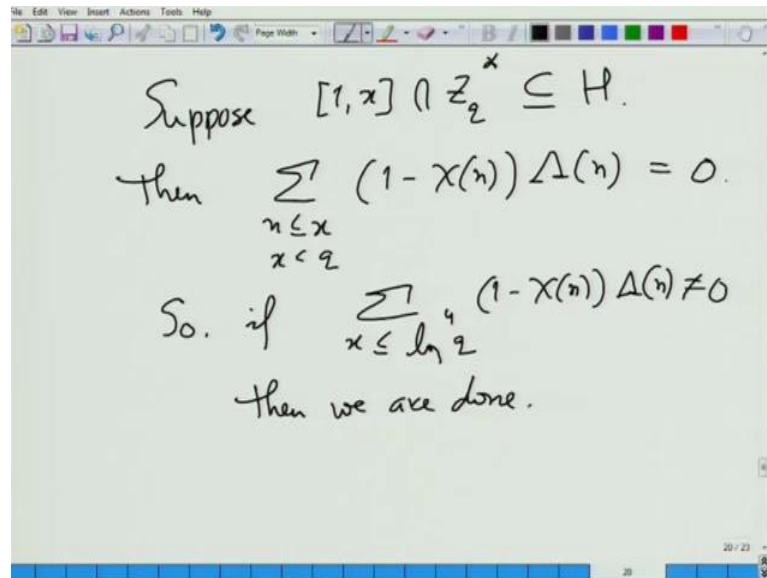 File Edit View Insert Actions Tools Help
Page Width
B I
Suppose [1, x] ∩ Z_q^* ⊆ H.
Then ∑ (1 - χ(n)) Λ(n) = 0.
n ≤ x
x < q
So. if ∑ (1 - χ(n)) Λ(n) ≠ 0
x ≤ ln^4 q
then we are done.
20 / 23
20